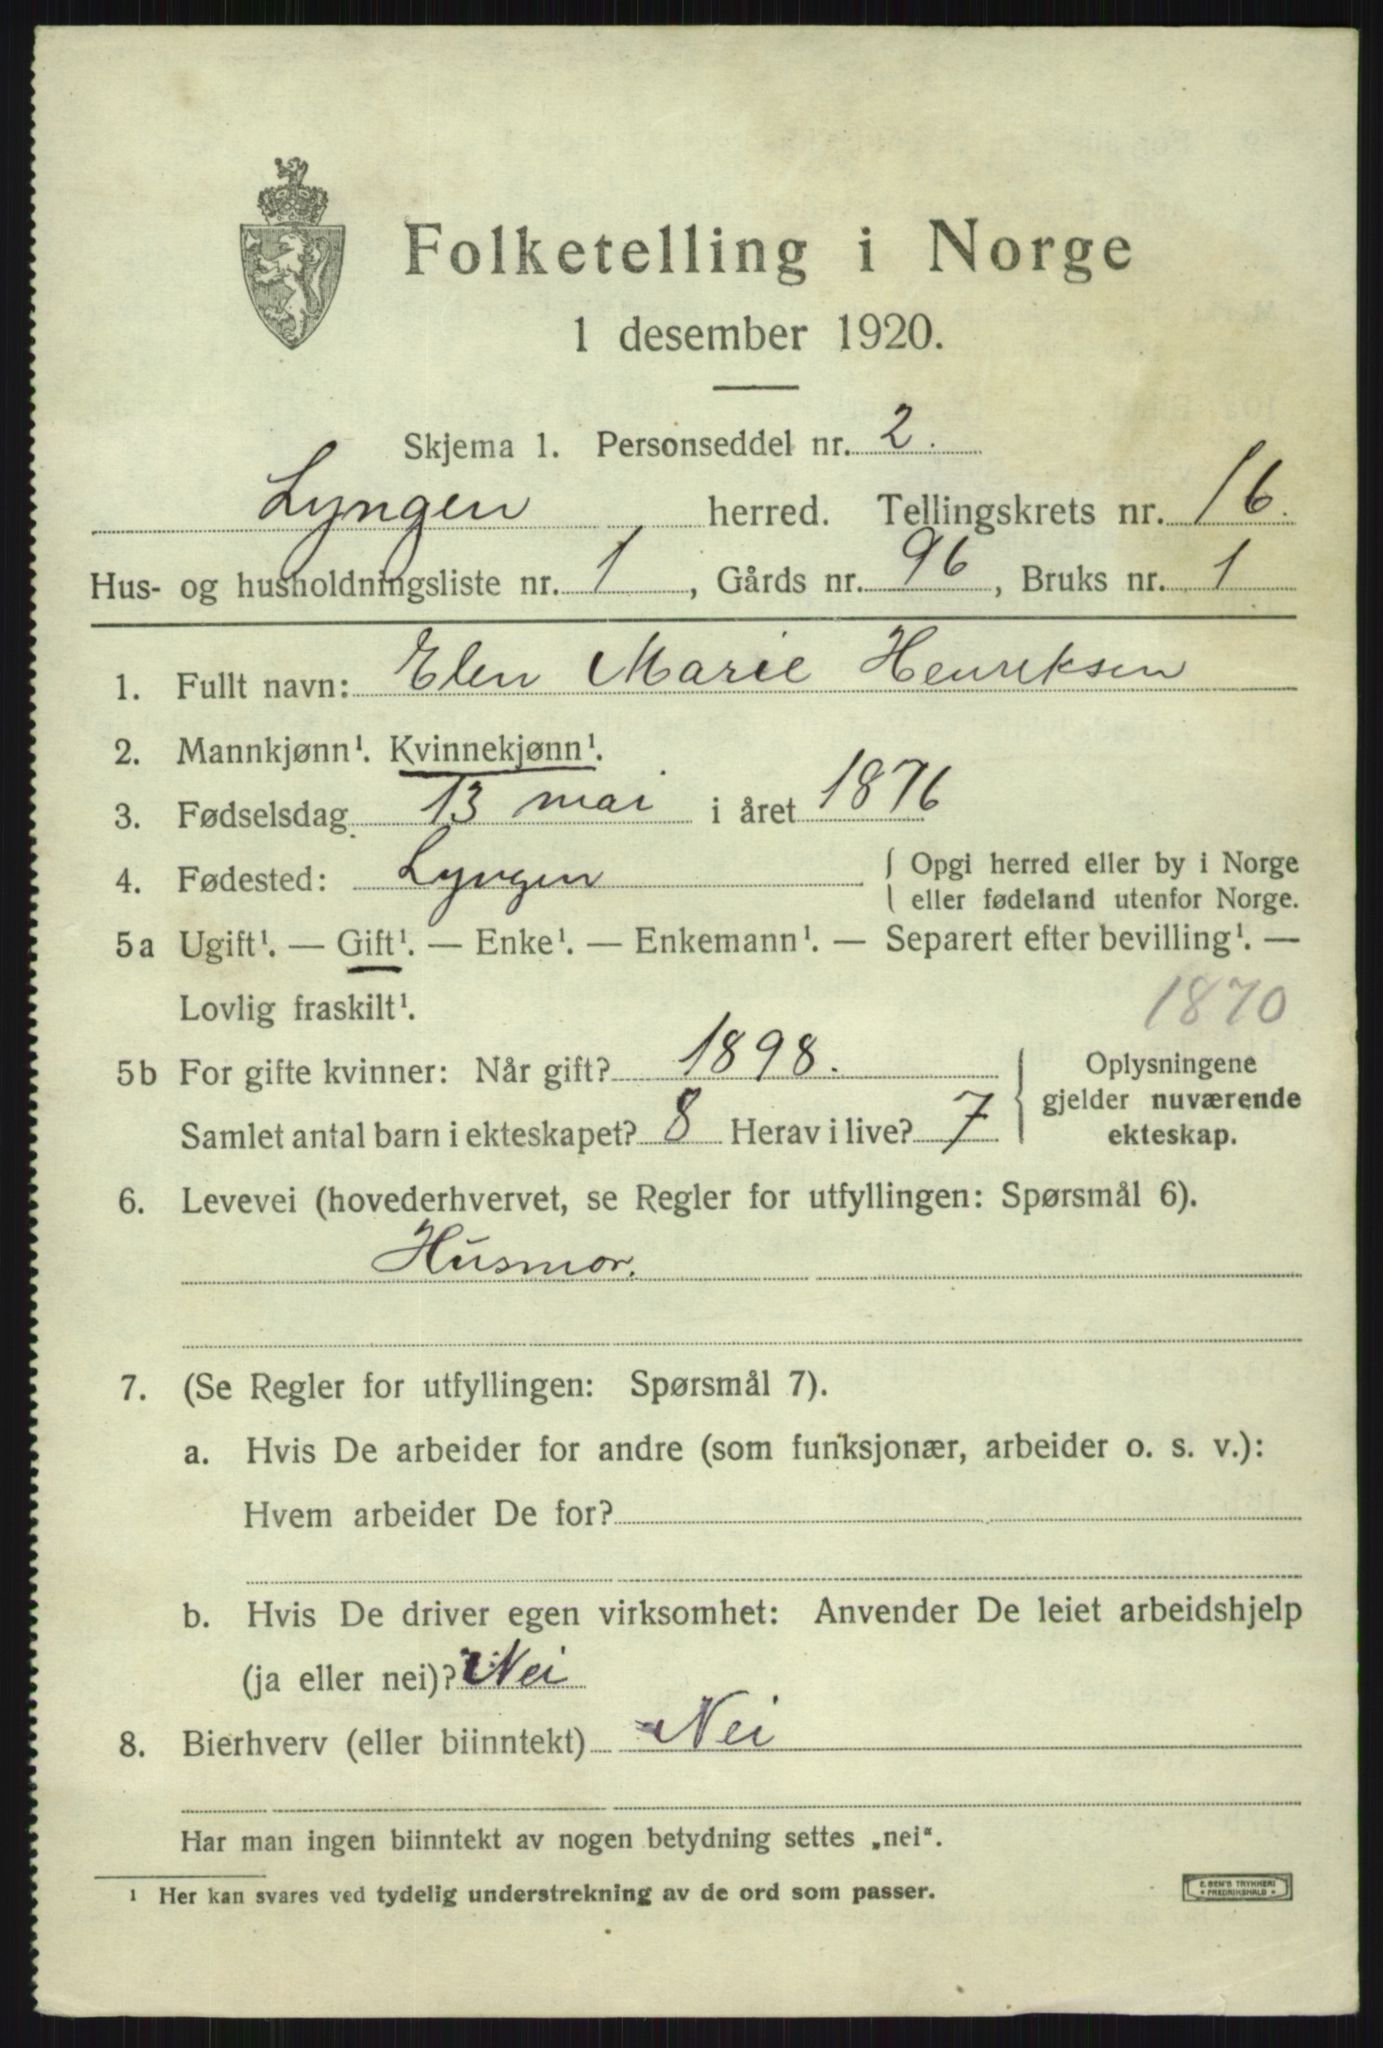 Folketelling i Norge
1 desember 1920.
Skjema 1. Personseddel nr. 2.
Lyngen herred. Tellingskrets nr. 16.
Hus- og husholdningsliste nr. 1, Gårds nr. 96, Bruks nr. 1
1. Fullt navn: Elen Marie Henriksen
2. Mannkjønn¹. Kvinnekjønn¹.
3. Fødselsdag 13 mai i året 1876
4. Fødested: Lyngen { Opgi herred eller by i Norge
eller fødeland utenfor Norge.
5a Ugift¹. — Gift¹. — Enke¹. — Enkemann¹. — Separert efter bevilling¹. —
Lovlig fraskilt¹.
1870
5b For gifte kvinner: Når gift? 1898.
Samlet antal barn i ekteskapet? 8 Herav i live? 7
{ Oplysningene
gjelder nuværende
ekteskap.
6. Levevei (hovederhvervet, se Regler for utfyllingen: Spørsmål 6).
Husmor.
7. (Se Regler for utfyllingen: Spørsmål 7).
a. Hvis De arbeider for andre (som funksjonær, arbeider o. s. v.):
Hvem arbeider De for?
b. Hvis De driver egen virksomhet: Anvender De leiet arbeidshjelp
(ja eller nei)? Nei
8. Bierhverv (eller biinntekt) Nei
Har man ingen biinntekt av nogen betydning settes „nei“.
¹ Her kan svares ved tydelig understrekning av de ord som passer.
E. SEM'S TRYKKERI
* FREDRIKSHALD *